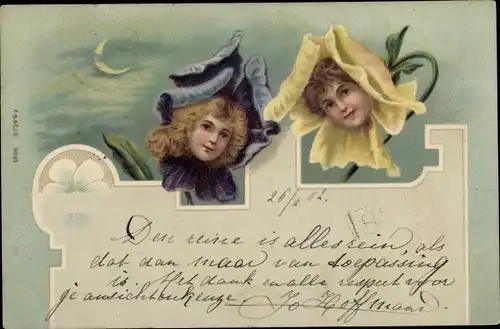 26/2 02.
Den reine is alles rein, als
dat dan maar van toepassing
is. Met dank en alle respect voor
je ansichtenkeuze Jo Hoffmann.